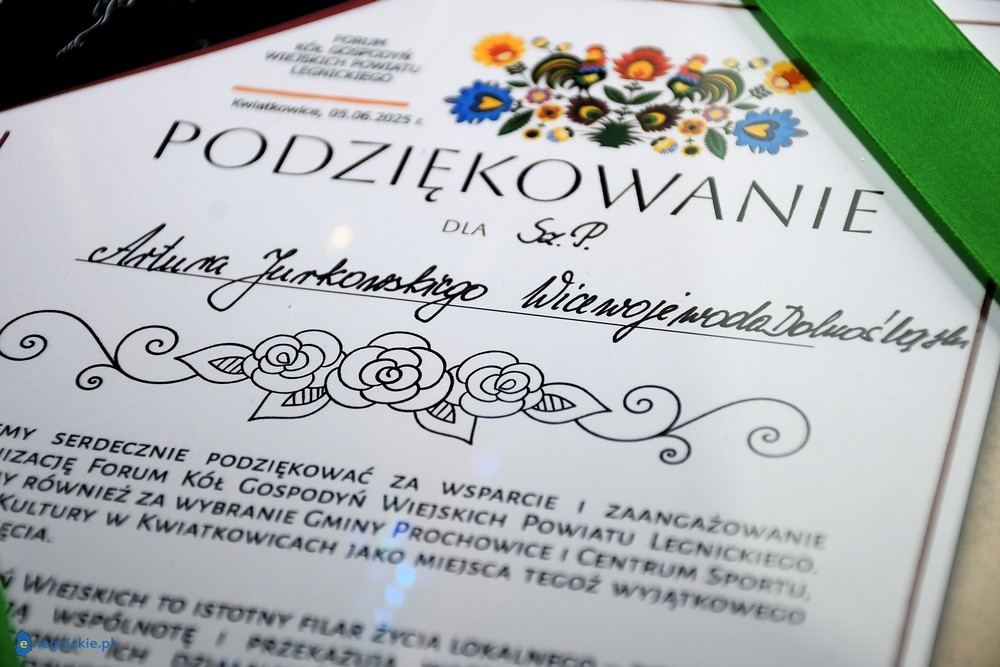 FORUM
KÓŁ GOSPODYŃ
WIEJSKICH POWIATU
LEGNICKIEGO
Kwiatkowice, 05.06.2025 r.
PODZIĘKOWANIE
DLA Sz. P.
Artura Jurkowskiego Wicewojewoda
SERDECZNIE PODZIĘKOWAĆ ZA WSPARCIE I ZAANGAŻOWANIE
FORUM KÓŁ GOSPODYŃ WIEJSKICH POWIATU LEGNICKIEGO.
RÓWNIEŻ ZA WYBRANIE GMINY PROCHOWICE I CENTRUM SPORTU,
KULTURY W KWIATKOWICACH JAKO MIEJSCA TEGOŻ WYJĄTKOWEGO
WIEJSKICH TO ISTOTNY FILAR ŻYCIA LOKALNEGO
WSPÓLNOTĘ I PRZEKAZUJĄ
ICH
e-legnickie.pl